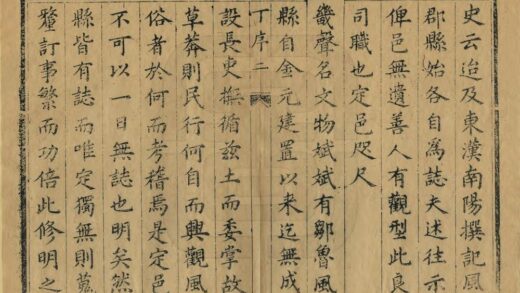 史云迨及東漢南陽撰記風
郡縣始各自為誌夫述往示
俾邑無遺善人有觀型此良
司職也定邑咫尺
畿聲名文物斌斌有鄒魯風
縣自金元建置以來迄無成
丁序二
設長吏撫循茲土而委掌故
草莽則民行何自而興觀風
俗者於何而考稽焉是定邑
不可以一日無誌也明矣然
縣皆有誌而唯定獨無則蒐
釐訂事繁而功倍此修明之